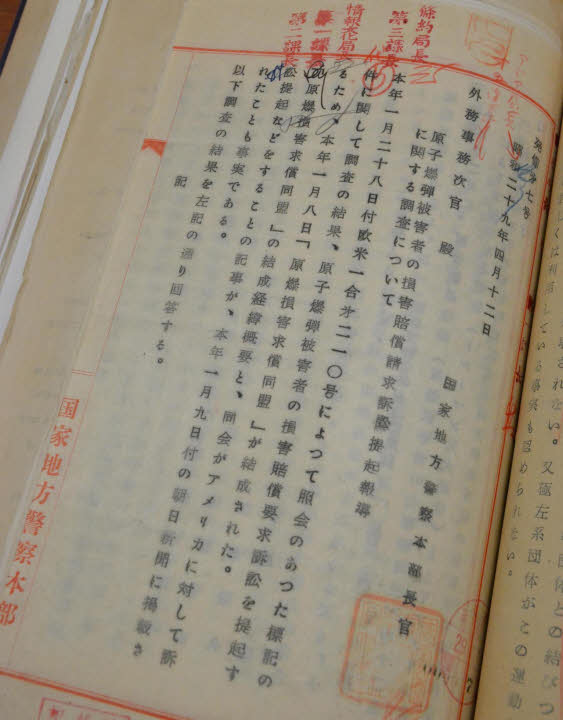 つは利用している事実も認められない。又極左系団体がこの運動
団体との結びつ
発備第七号
昭和二十九年四月十二日
国家地方警察本部長官
外務事務次官 殿
原子爆弾被害者の損害賠償請求訴訟提起報導
に関する調査について
本年一月二十八日付欧米一合才二一〇号によつて照会のあつた標記の
件に関して調査の結果、原子爆弾被害者の損害賠償要求訴訟を提起す
るため、本年一月八日「原爆損害求償同盟」が結成された。
原爆損害求償同盟」の結成経緯概要と、同会がアメリカに対して訴
訟提起などをすることの記事が、本年一月九日付の朝日新聞に掲載さ
れたことも事実である。
以下調査の結果を左記の通り回答する。
記
條約局長
第三課長
情報文化局
第一課長
第二課長
国家地方警察本部